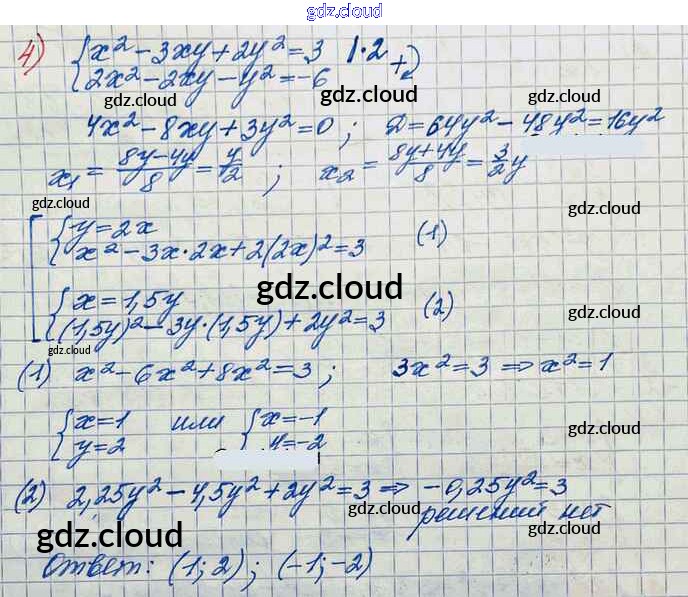 gdz.cloud
4) { x² - 3xy + 2y² = 3 | · 2
{ 2x² - 2xy - y² = -6 +
gdz.cloud gdz.cloud
4x² - 8xy + 3y² = 0 ; D = 64y² - 48y² = 16y²
x₁ = (8y-4y)/8 = y/2 ; x₂ = (8y+4y)/8 = 3/2 y
gdz.cloud
gdz.cloud
[ { y = 2x
{ x² - 3x·2x + 2(2x)² = 3 (1)
gdz.cloud
{ x = 1,5y
{ (1,5y)² - 3y·(1,5y) + 2y² = 3 (2)
gdz.cloud
gdz.cloud
(1) x² - 6x² + 8x² = 3 ; 3x² = 3 ⇒ x² = 1
{ x = 1 или { x = -1
{ y = 2 { y = -2
gdz.cloud
(2) 2,25y² - 4,5y² + 2y² = 3 ⇒ -0,25y² = 3
gdz.cloud gdz.cloud
решений нет
gdz.cloud gdz.cloud
Ответ: (1; 2) ; (-1; -2)